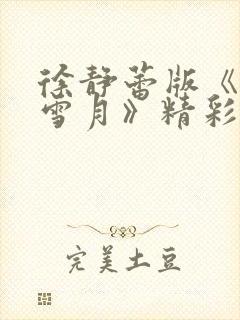 徐静蕾版《
雪月》精彩
完美土豆